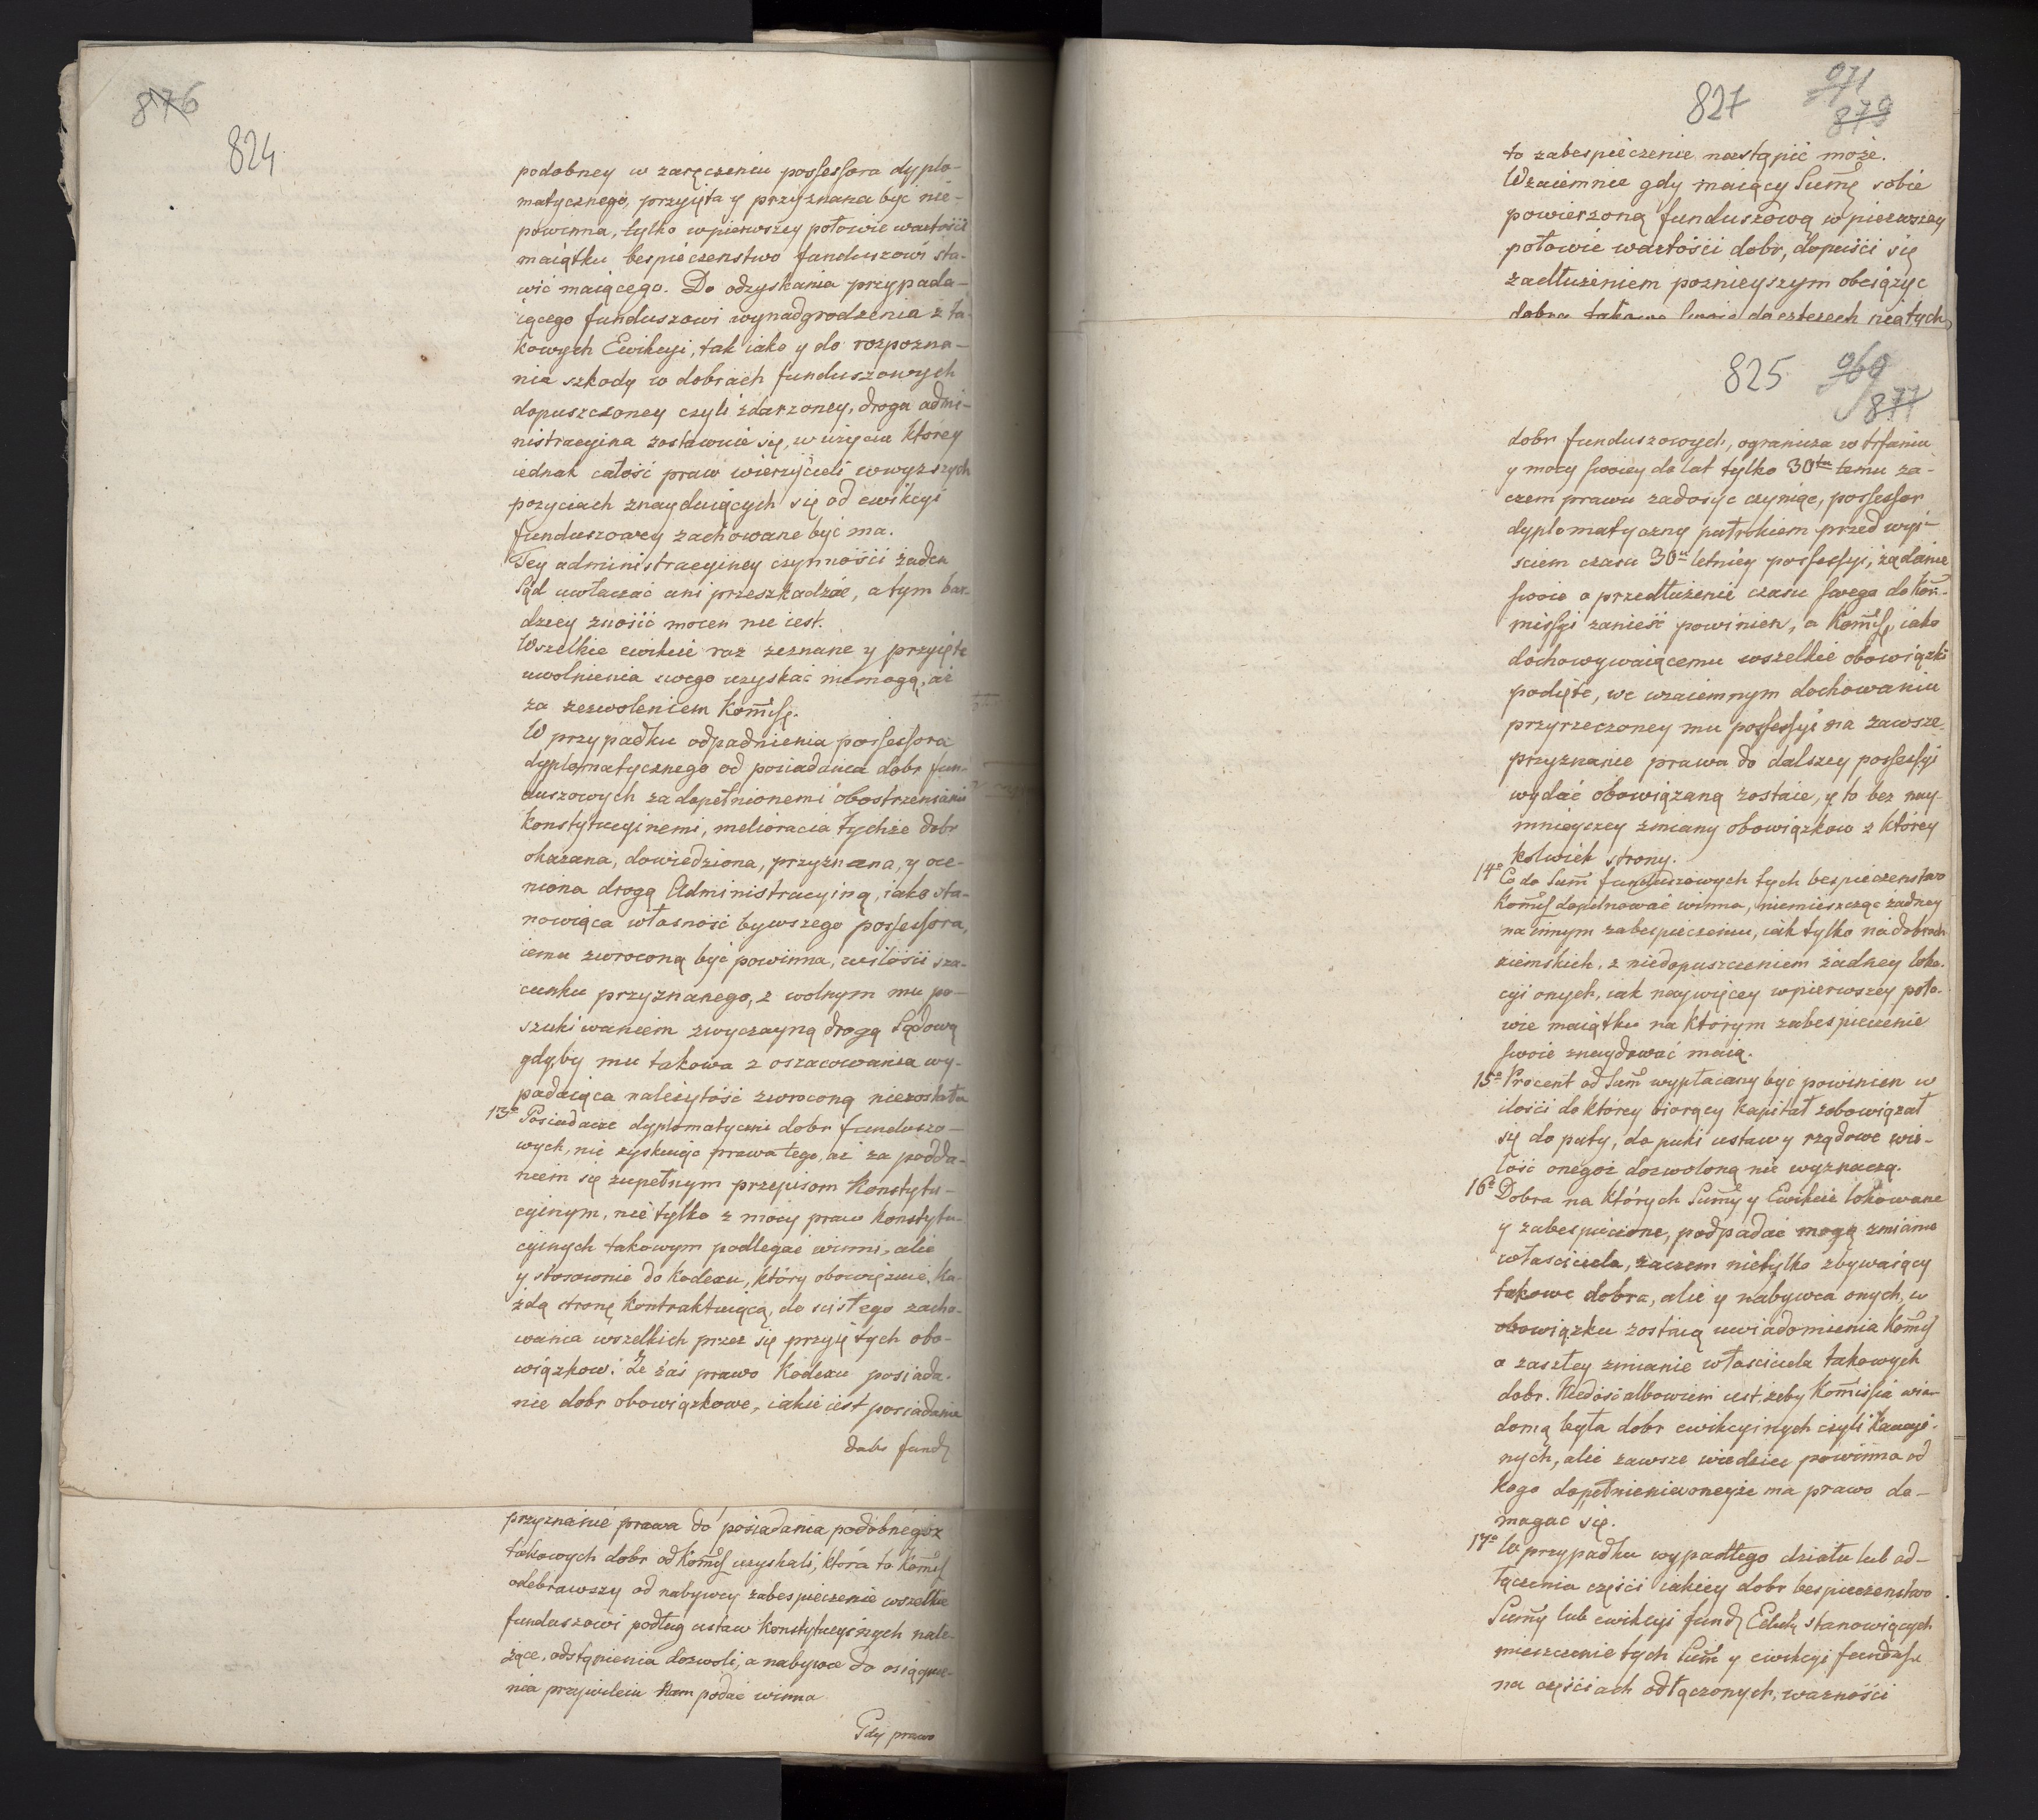 876
824
podobney w zaręczeniu possessora dyplo-
matycznego, przyięta y przyznana być nie-
powinna, tylko w pierwszey połowie wartości
maiątku bespieczenstwo funduszowi sta-
wić maiącego. Do odzyskania przypada-
iącego funduszowi wynadgrodzenia z ta-
kowych Ewikcyi, tak iako y do rozpozna-
nia szkody w dobrach funduszowych
dopuszczoney czyli zdarzoney, droga admi-
nistracyina zostawuie się, w użyciu którey
iednak całość praw wierzycieli w wyższych
pozyciach znayduiących się od ewikcyi
funduszowey zachowane być ma.
Tey administracyiney czynności żaden
Sąd uwłaczać ani przeszkadzać, a tym bar-
dziey znosić mocen nie iest.
Wszelkie ewikcie raz zeznane y przyięte
uwolnienia swego uzyskać niemogą, aż
za zezwoleniem Kommissy.
W przypadku odpadnienia possessora
dyplomatycznego od posiadania dobr fun-
duszowych za dopełnionemi obostrzeniami
Konstytucyinemi, melioracia tychże dobr
okazana, dowiedziona, przyznana, y oce-
niona drogą Administracyiną, iako sta-
nowiąca własność bywszego possessora,
iemu zwroconą być powinna, w ilości sza-
cunku przyznanego, z wolnym mu po-
szukiwaniem zwyczayną drogą Sądową
gdyby mu takowa z oszacowania wy-
padaiąca należytość zwroconą niezostała
13º Posiadacze dyplomatyczni dobr funduszo-
wych, nie zyskuiąc prawa tego, aż za podda-
niem się zupełnym przepisom Konstytu-
cyinym, nie tylko z mocy praw konstytu-
cyinych takowym podlegać winni, alie
y stosownie do Kodexu, który obowięzuie ka-
żdą stronę kontraktuiącą, do scisłego zacho-
wania wszelkich przez się przyiętych obo-
wiązkow. Że zaś prawo Kodexu posiada-
nie dobr obowiązkowe, iakie iest posiadanie
dobr fund
przyznanie prawa do posiadania podobnegoż
takowych dobr od Kommiss uzyskali, która to Kommiss
odebrawszy od nabywcy zabespieczenie wszelkie
funduszowi podług ustaw Konstytucyinych nale-
żące, odstąpienia dozwoli, a nabywce do osiągnie-
nia przywileiu Nam podać winna
Gdy prawo
827
971
879
to zabespieczenie nastąpić może.
Wzaiemnie gdy maiący Summę sobie
powierzoną funduszową w pierwszey
połowie wartości dobr, dopuści się
zadłużeniem poznieyszym obciążyć
dobra takowe swoie do czterech piątych
825
969
877
dobr funduszowych, ogranicza w trfaniu
y mocy swoiey do lat tylko 30tu temu za-
czem prawu zadosyc czyniąc, possessor
dyplomatyczny pułrokiem przed wyi-
sciem czasu 30u letniey possessyi, żądanie
swoie o przedłużenie czasu swego do Kom-
missyi zanieść powinien, a Kommiss, iako
dochowywaiącemu wszelkie obowiązki
podięte, we wzaiemnym dochowaniu
przyrzeczoney mu possessyi na zawsze
przyznanie prawa do dalszey possessyi
wydać obowiązaną zostaie, y to bez nay-
mnieyszey zmiany obowiązkow z którey
kolwiek strony.
14º Co do Summ funduszowych tych bespieczenstwo
Kommiss dopilnować winna, niemieszcząc żadney
na innym zabespieczeniu, iak tylko na dobrach
ziemskich, z niedopuszczeniem żadney loka-
cyi onych, iak naywięcey w pierwszey poło-
wie maiątku na którym zabespieczenie
swoie znaydować maią.
15º Procent od Summ wypłacany być powinien w
ilości do którey biorący kapitał zobowiązał
się do puty, do puki ustawy rządowe wie-
lość onegoż dozwoloną nie wyznaczą.
16º Dobra na których Summy y Ewikcie lokowane
y zabespieczone, podpadać mogą zmianie
własciciela, zaczem nietylko zbywaiący
takowe dobra, alie y nabywca onych, w
obowiązku zostaią uwiadomienia Kommiss
o zaszłey zmianie własciciela takowych
dobr. Niedość albowiem iest, żeby Kommissia wia-
domą była dobr ewikcyinych czyli Kaucyi-
nych, alie zawsze wiedziec powinna od
kogo dopełnienia oneyże ma prawo do-
magać się.
17º W przypadku wypadłego działu lub od-
łączenia części iakiey dobr bespieczenstwo
Summy lub ewikcyi fund Eduk stanowiących
mieszczenie tych Summ y ewikcyi fundusz
na częściach odłączonych, ważności